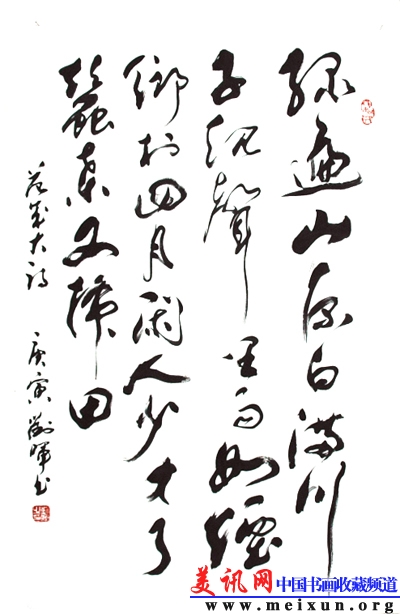 绿遍山原白满川
子规聲里雨如煙
鄉村四月闲人少才了
蠶桑又插田
范成大诗 庚寅劉暉书
美讯网 中国书画收藏频道
www.meixun.org